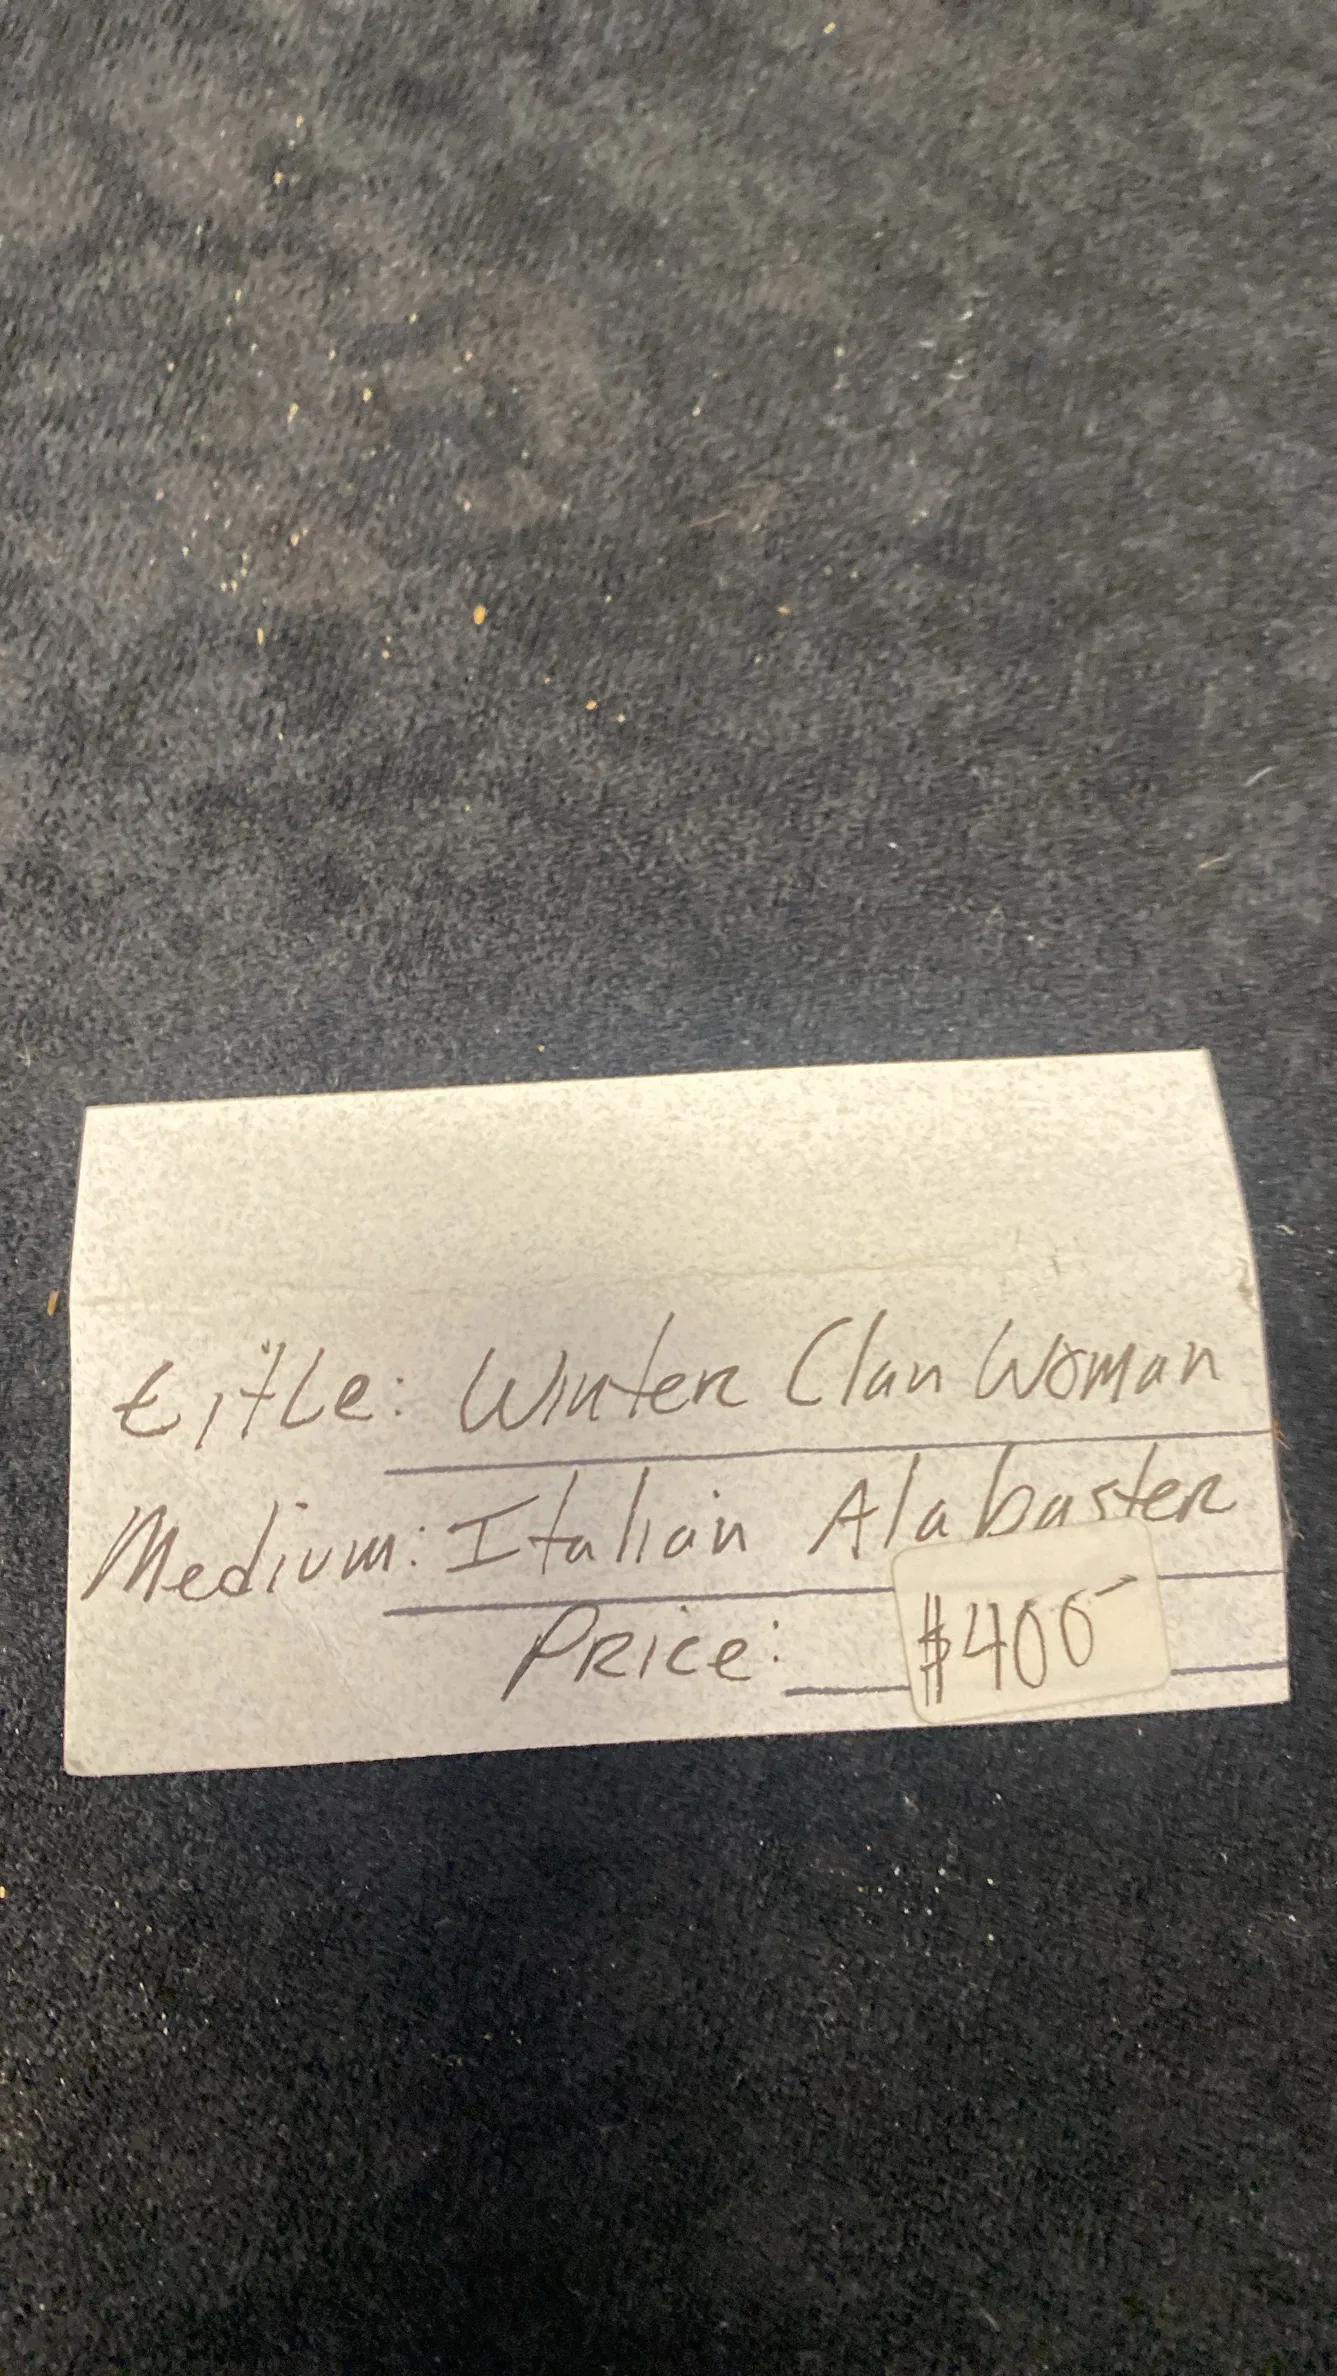 title: Winter Clan Woman
Medium: Italian Alabaster
Price: $400-